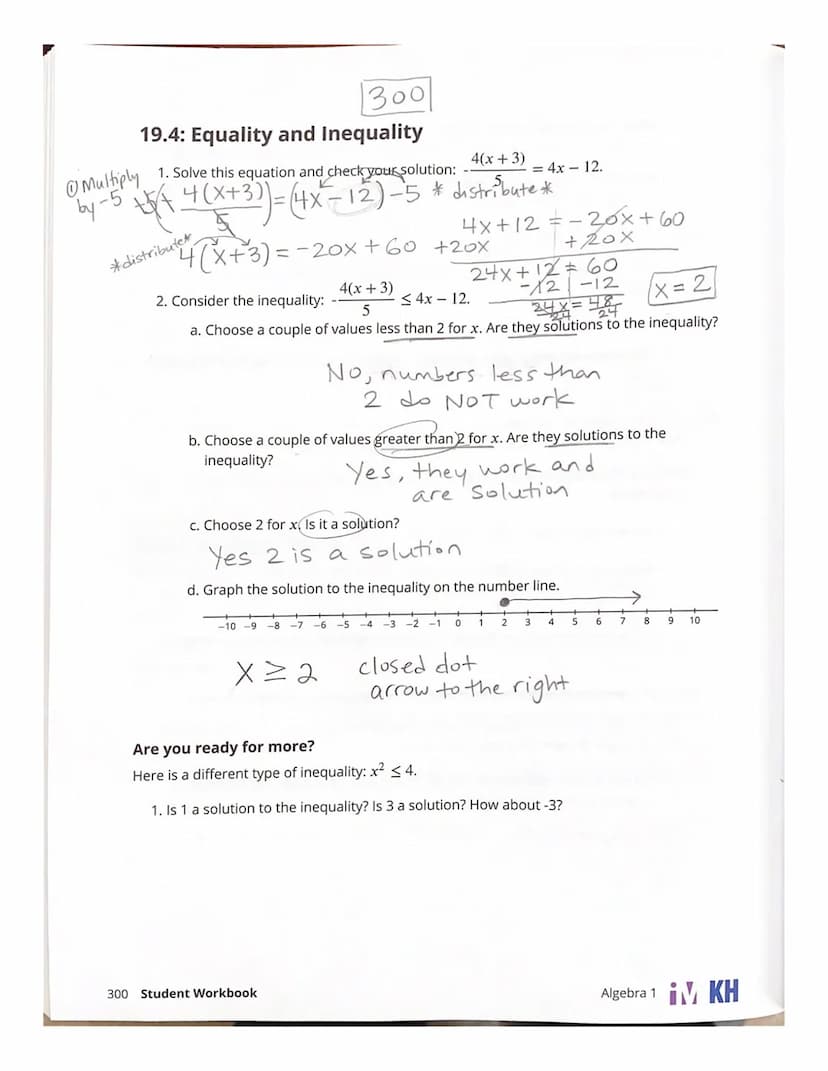 300
19.4: Equality and Inequality
1. Solve this equation and check your solution: -4(x + 3)/5 = 4x − 12.
① Multiply by -5
-5(-4(x+3)/5) = (4x-12)-5 * distribute *
*distribute* 4(x+3) = -20x + 60
4x+12 = -20x + 60
+20x +20x
24x + 12 = 60
-12 | -12
24x = 48
24 24
x = 2
2. Consider the inequality: -4(x + 3)/5 ≤ 4x − 12.
a. Choose a couple of values less than 2 for x. Are they solutions to the inequality?
No, numbers less than
2 do NOT work
b. Choose a couple of values greater than 2 for x. Are they solutions to the
inequality?
Yes, they work and
are solution
c. Choose 2 for x. Is it a solution?
Yes 2 is a solution
d. Graph the solution to the inequality on the number line.
−10 −9 −8 −7 −6 −5 −4 −3 −2 −1 0 1 2 3 4 5 6 7 8 9 10
x ≥ 2 closed dot
arrow to the right
Are you ready for more?
Here is a different type of inequality: x² ≤ 4.
1. Is 1 a solution to the inequality? Is 3 a solution? How about -3?
300 Student Workbook
Algebra 1 IM KH